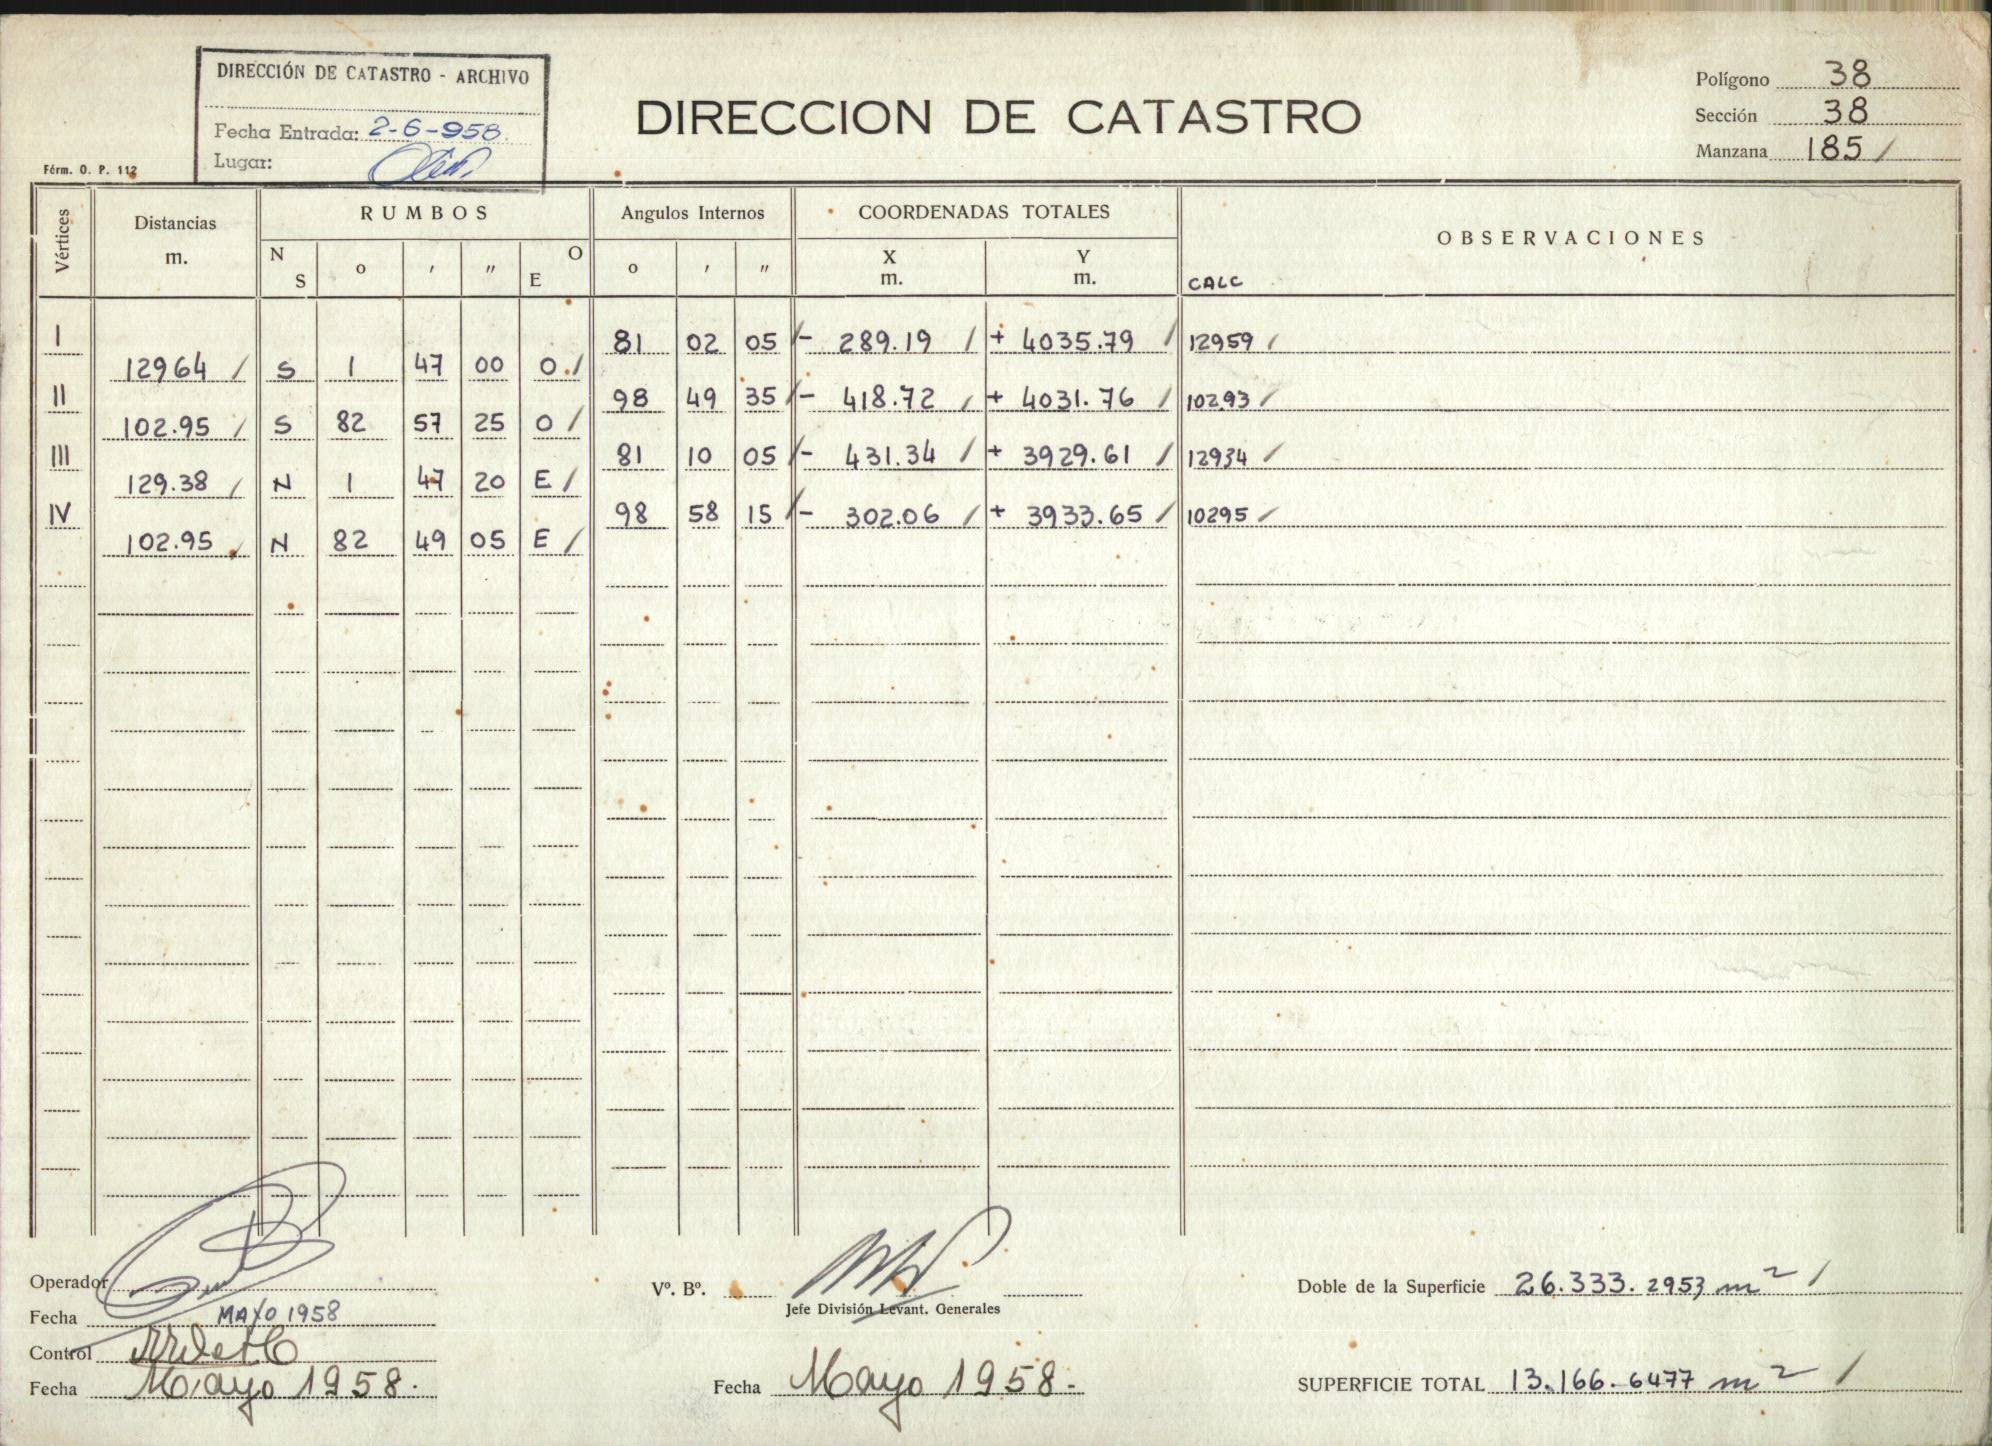 DIRECCIÓN DE CATASTRO - ARCHIVO
Fecha Entrada: 2-6-958.
Lugar:
Férm. O. P. 112
DIRECCION DE CATASTRO
Polígono 38
Sección 38
Manzana 185 /
Vértices
Distancias
m.
RUMBOS
N S ° ' " E O
Angulos Internos
° ' "
COORDENADAS TOTALES
X m. Y m.
OBSERVACIONES
CALC
I 81 02 05 / - 289.19 / + 4035.79 / 12959 /
12964 / S 1 47 00 O /
II 98 49 35 / - 418.72 / + 4031.76 / 10293 /
102.95 / S 82 57 25 O /
III 81 10 05 / - 431.34 / + 3929.61 / 12934 /
129.38 / N 1 47 20 E /
IV 98 58 15 / - 302.06 / + 3933.65 / 10295 /
102.95 / N 82 49 05 E /
Operador
Fecha MAYO 1958
Control
Fecha Mayo 1958.
Vº. Bº.
Jefe División Levant. Generales
Fecha Mayo 1958.-
Doble de la Superficie 26.333.2953 m² /
SUPERFICIE TOTAL 13.166.6477 m² /